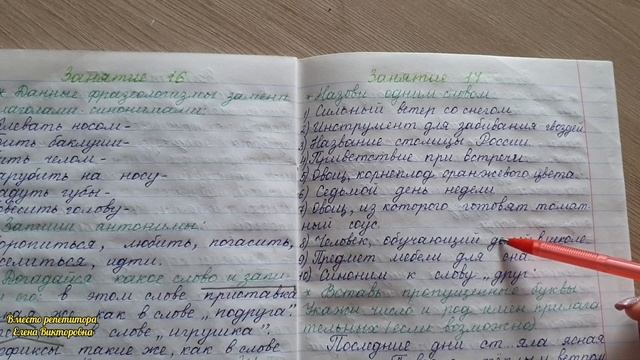 Занятие 16
Данные фразеологизмы замени
глаголами-синонимами:
клевать носом-
бить баклуши-
бить челом-
зарубить на носу-
надуть губы-
повесить голову-
Запиши антонимы:
торопиться, любить, погасить,
веселиться, идти.
Догадайся какое слово и запи-
в этом слове приставка
как в слове "подруга",
слове "игрушка",
такие же, как в слове
Занятие 17
Назови одним словом
1) Сильный ветер со снегом
2) Инструмент для забивания гвоздей
3) Название столицы России
4) Приветствие при встречи
5) Овощ, корнеплод оранжевого цвета
6) Седьмой день недели
7) Овощ, из которого готовят томат-
ный соус.
8) Человек, обучающий в школе
9) Предмет мебели для сна
10) Синоним к слову "друг"
Вставь пропущенные буквы
Укажи число и род имен прилага
тельных (если возможно)
Последние дни ст_яла ясная
ветром
Вместо репетитора
Елена Викторовна